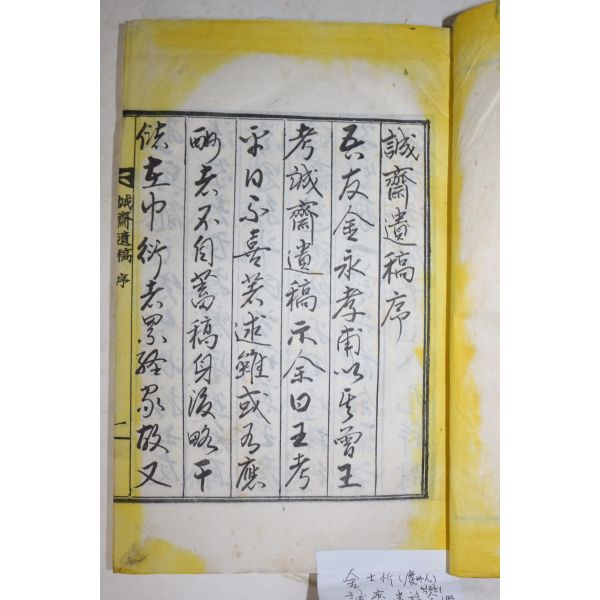 誠齋遺稿序
吾友金永孝甫以其曾王
考誠齋遺稿示余曰王考
平日不喜著述雖或有應
酬者不自蓄稿身後略干
儲在巾衍者累經家故又
誠齋遺稿 序
一
金士忻(慶州人)
誠齋